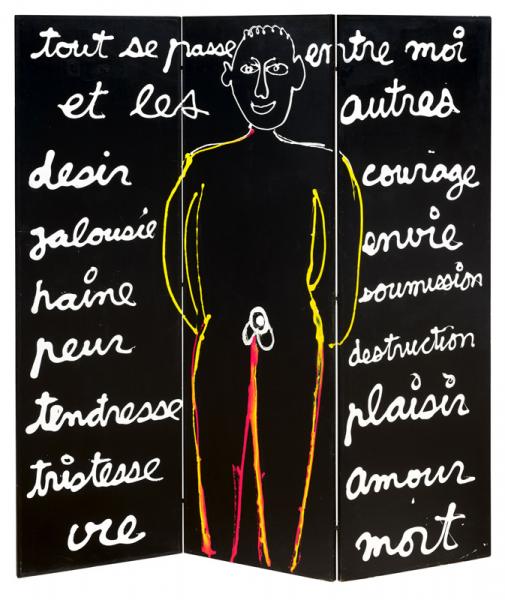 tout se passe entre moi
et les autres
desir courage
jalousie envie
haine soumission
peur destruction
tendresse plaisir
tristesse amour
vie mort